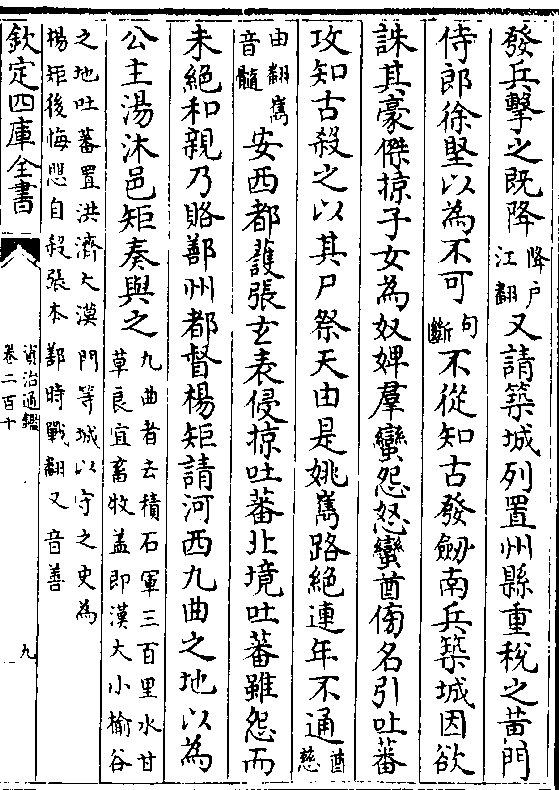 發兵擊之既降降户江翻又請築城列置州縣重稅之黄門
侍郎徐堅以為不可句斷不從知古發劒南兵築城因欲
誅其豪傑掠子女為奴婢羣蠻怨怒蠻酋傍名引吐蕃
攻知古殺之以其尸祭天由是姚巂路絶連年不通酋慈
由翻巂音髓安西都護張玄表侵掠吐蕃北境吐蕃雖怨而
未絕和親乃賂鄯州都督楊矩請河西九曲之地以為
公主湯沐邑矩奏與之九曲者去積石軍三百里水甘草良宜畜牧盖即漢大小榆谷
之地吐蕃置洪濟大漠門等城以守之史為楊矩後悔愳自殺張本鄯時戰翻又音善
欽定四庫全書
資治通鑑
卷二百十
九